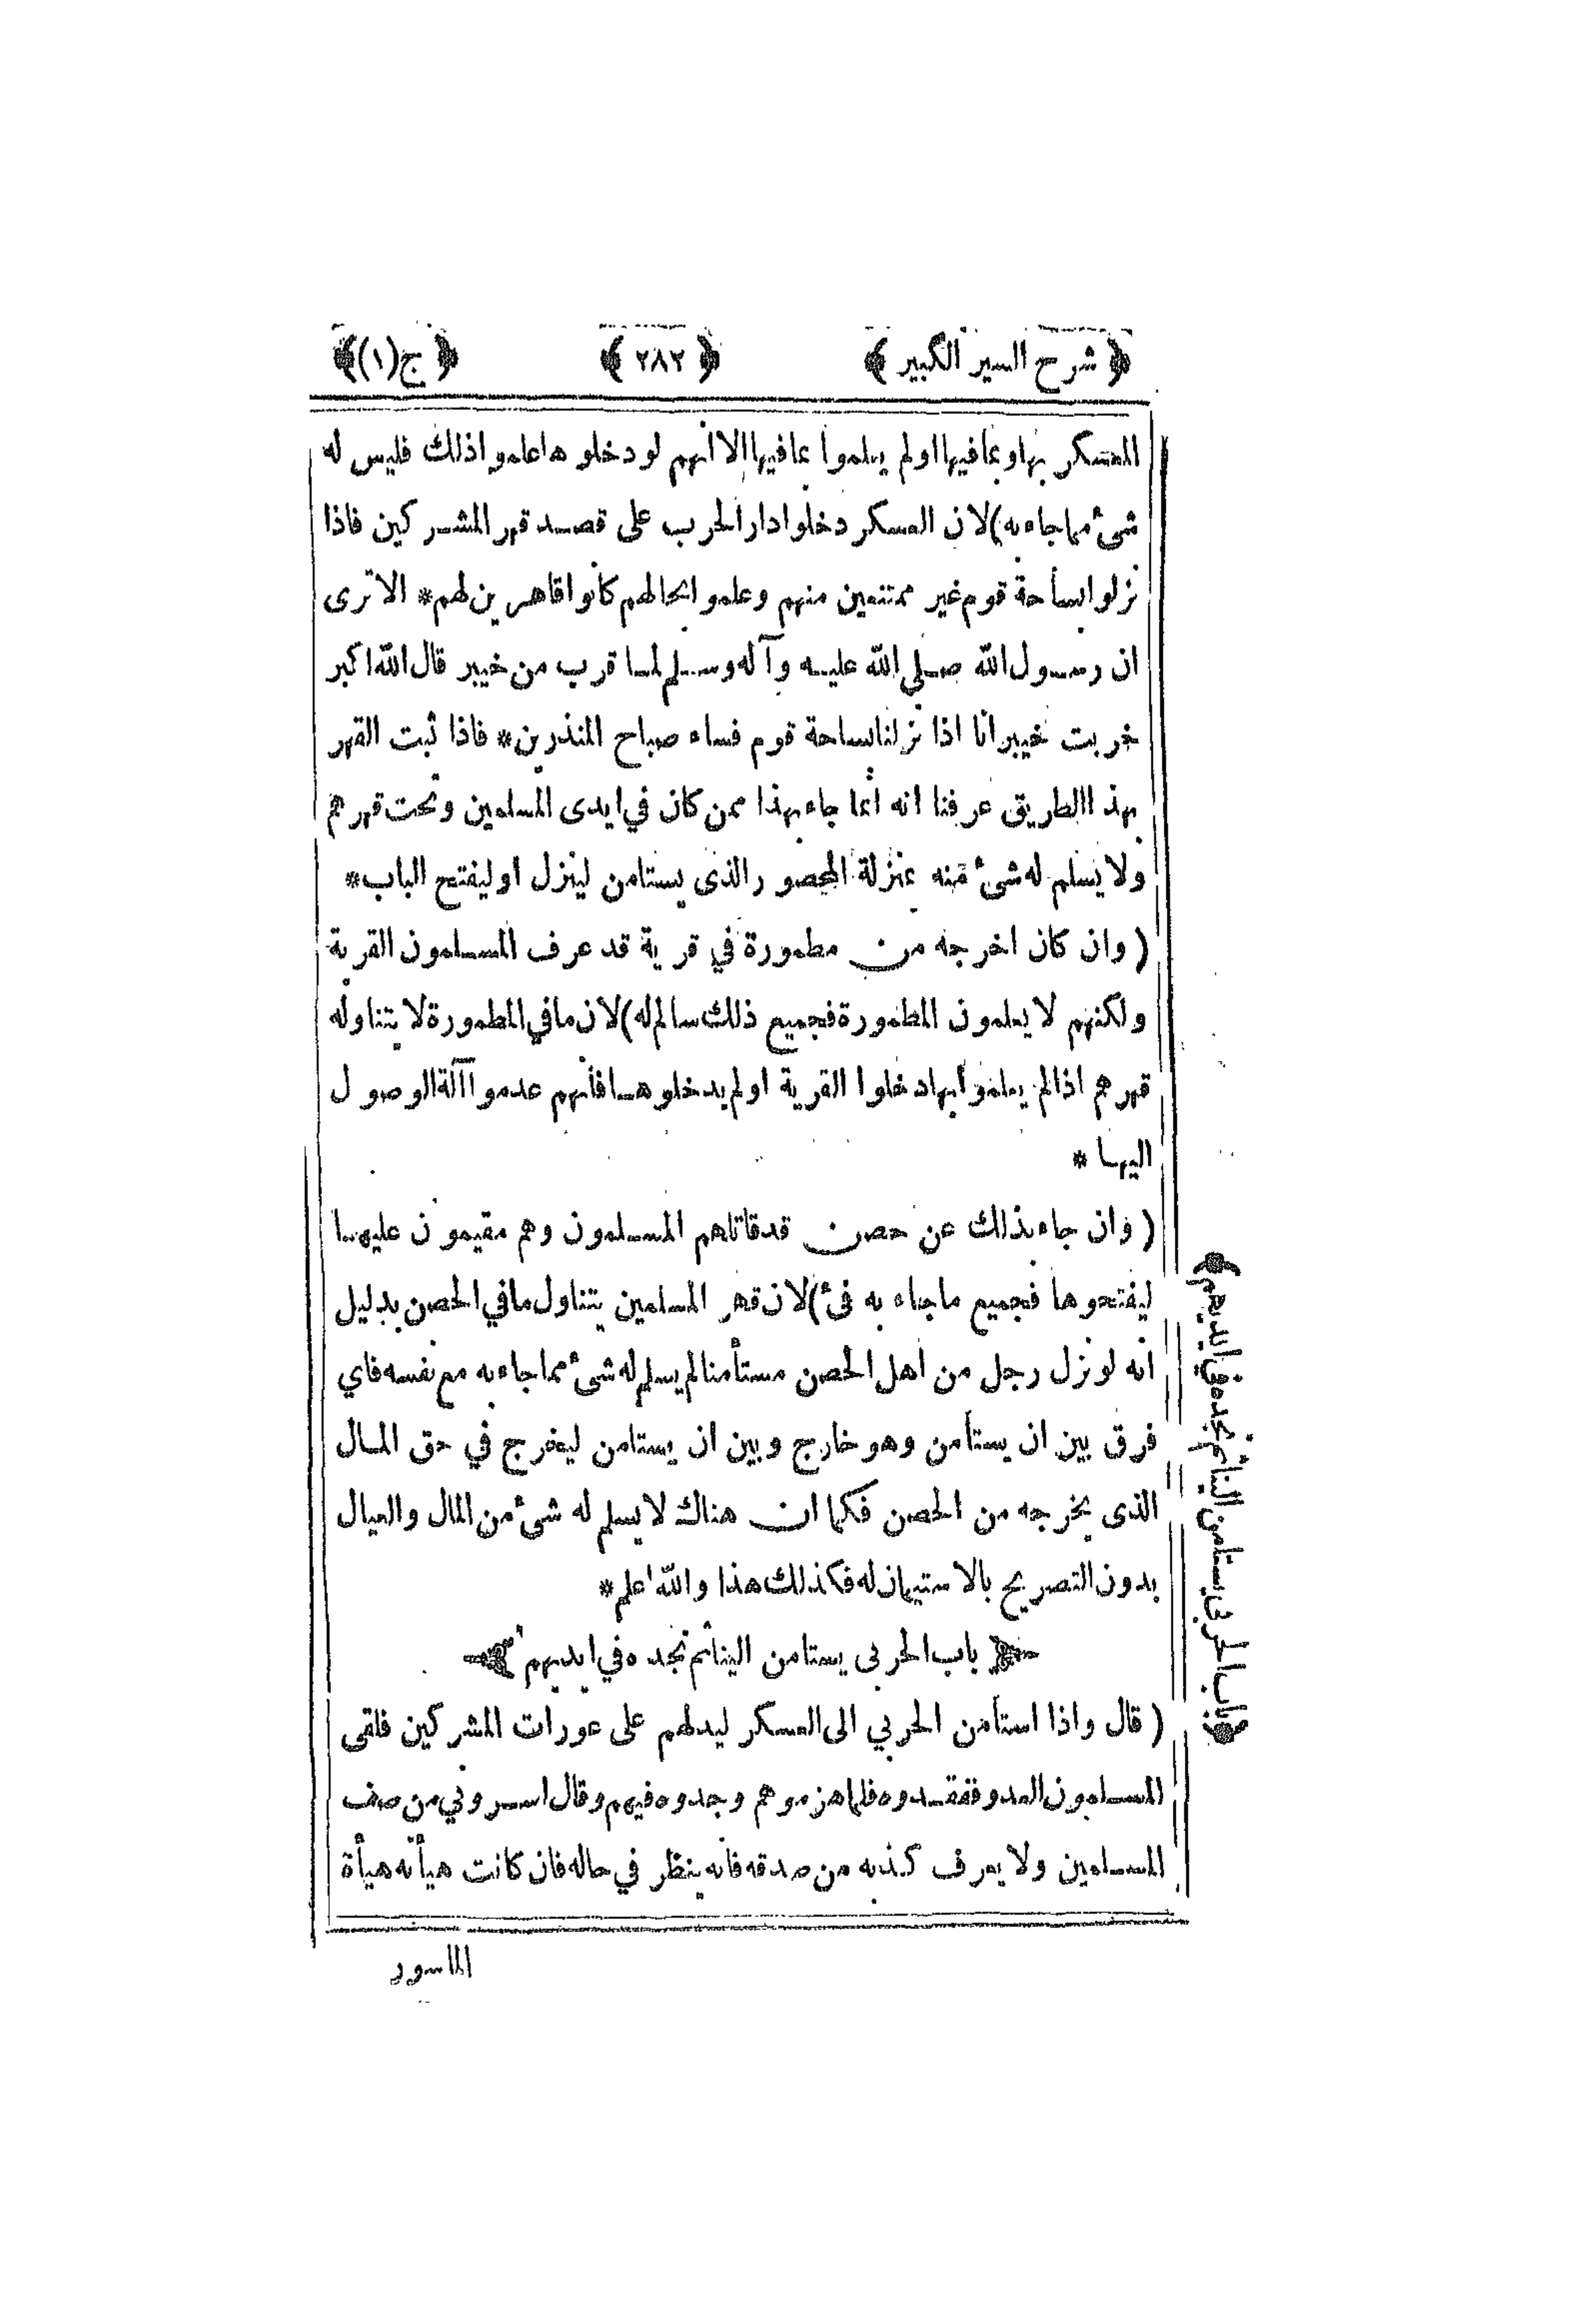 ﴿ شرح السير الكبير ﴾ ﴿ ٢٨٢ ﴾ ﴿ ج (١) ﴾
العسكر بها وبما فيها او لم يعلموا بما فيها الا انهم لو دخلوها علموا ذلك فليس له
شئ مما جاء به) لان العسكر دخلوا دار الحرب على قصد قهر المشركين فاذا
نزلوا بساحة قوم غير ممتنعين منهم وعلموا بحالهم كانوا قاهرين لهم* الا ترى
ان رسول الله صلى الله عليه وآله وسلم لما قرب من خيبر قال الله اكبر
خربت خيبر انا اذا نزلنا بساحة قوم فساء صباح المنذرين* فاذا ثبت القهر
بهذا الطريق عرفنا انه انما جاء بهذا ممن كان في ايدى المسلمين وتحت قهرهم
ولا يسلم له شئ منه بمنزلة المحصور الذى يستامن لينزل او ليفتح الباب*
( وان كان اخرجه من مطمورة في قرية قد عرف المسلمون القرية
ولكنهم لا يعلمون المطمورة فجميع ذلك سالم له) لان ما في المطمورة لا يتناوله
قهرهم اذا لم يعلموا بها دخلوا القرية او لم يدخلوها فانهم عدموا آلة الوصول
اليها *
( وان جاء بذلك عن حصن قد قاتلهم المسلمون وهم مقيمون عليها
ليفتحوها فجميع ما جاء به فئ) لان قهر المسلمين يتناول ما في الحصن بدليل
انه لو نزل رجل من اهل الحصن مستأمنا لم يسلم له شئ مما جاء به مع نفسه فاي
فرق بين ان يستأمن وهو خارج وبين ان يستامن ليخرج في حق المال
الذى يخرجه من الحصن فكما ان هناك لا يسلم له شئ من المال والعيال
بدون التصريح بالاستيمان له فكذلك هذا والله اعلم*
باب الحربى يستامن الينا ثم نجده في ايديهم
( قال واذا استأمن الحربي الى العسكر ليدلهم على عورات المشركين فلقى
المسلمون العدو ففقدوه فلما هزموهم وجدوه فيهم وقال اسروني من صف
المسلمين ولا يعرف كذبه من صدقه فانه ينظر في حاله فان كانت هيأته هيأة
الماسور
﴿ باب الحربى يستامن الينا ثم نجده في ايديهم ﴾